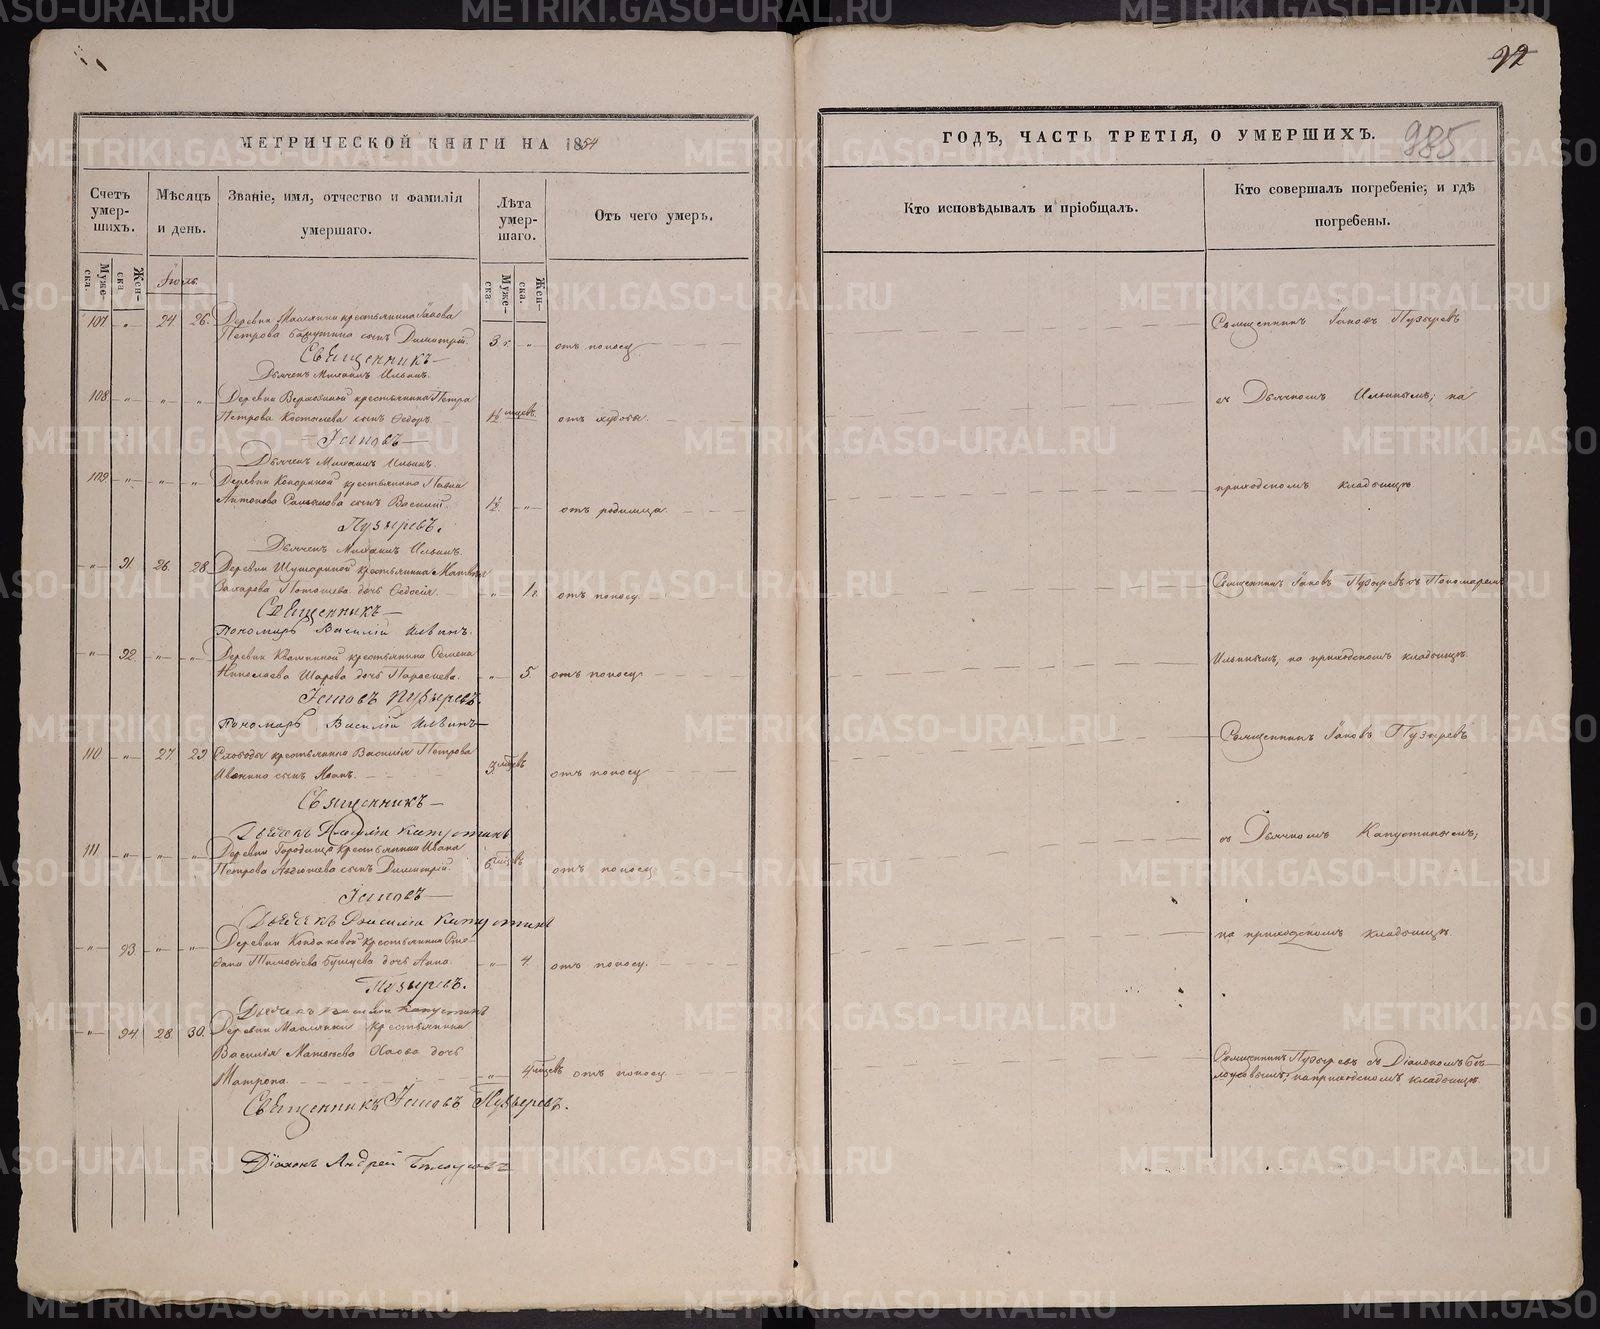 92
МЕТРИЧЕСКОЙ КНИГИ НА 1854
ГОДЪ, ЧАСТЬ ТРЕТІЯ, О УМЕРШИХЪ.
985
Счетъ умер-шихъ.
Мѣсяцъ и день.
Званіе, имя, отчество и фамилія умершаго.
Лѣта умер-шаго.
Отъ чего умеръ.
Кто исповѣдывалъ и пріобщалъ.
Кто совершалъ погребеніе; и гдѣ погребены.
Муже-ска.
Жен-ска
Іюль.
Муже-ска.
Жен-ска.
107. „ 24. 26. Деревни Маслянки крестьянина Іакова
Петрова сынъ Димитрій. 3 г. „ отъ поносу
Священникъ
Дьячекъ Михаилъ Ильинъ.
Священникъ Іаковъ Пузыревъ
108 „ „ „ Деревни крестьянина Петра
Петрова сынъ Ѳедоръ. 1½ мцевъ. отъ худобы.
Іаковъ
Дьячекъ Михаилъ Ильинъ.
съ Дьячкомъ Ильинымъ; на
109. „ „ „ Деревни крестьянина Павла
Антонова сынъ Василій. 1½. „ отъ родимца.
Пузыревъ.
Дьячекъ Михаилъ Ильинъ.
приходскомъ кладбищѣ.
„ 91. 26. 28. Деревни крестьянина
Захарова дочь Ѳедосія. „ 1 г. отъ поносу.
Священникъ
Пономарь Василій Ильинъ.
Священникъ Іаковъ Пузыревъ съ Пономаремъ
„ 92. „ „ Деревни крестьянина Семена
Николаева Шарова дочь. „ 5. отъ поносу
Іаковъ Пузыревъ.
Пономарь Василій Ильинъ
Ильинымъ, на приходскомъ кладбищѣ.
110. „ 27. 29. Слободы крестьянина Василія Петрова
сынъ Иванъ. 3. мцевъ отъ поносу
Священникъ
Дьячекъ Василій Капустинъ
Священникъ Іаковъ Пузыревъ
111. „ „ „ Деревни Городища крестьянина Ивана
Петрова сынъ Димитрій. 6 мцевъ отъ поносу
Іаковъ
Дьячекъ Василій Капустинъ
съ Дьячкомъ Капустинымъ;
„ 93. „ „ Деревни крестьянина Сте-
фана Тимоѳеева дочь Анна. „ 4. отъ поносу.
Пузыревъ.
Дьячекъ Василій Капустинъ
на приходскомъ кладбищѣ.
„ 94. 28. 30. Деревни Маслянки крестьянина
Василія Матвѣева дочь
Матрона. „ 4 мцевъ отъ поносу.
Священникъ Іаковъ Пузыревъ.
Діаконъ Андрей Бѣлоусовъ
Священникъ Пузыревъ съ Діакономъ Бѣ-
лоусовымъ, на приходскомъ кладбищѣ.
METRIKI.GASO-URAL.RU